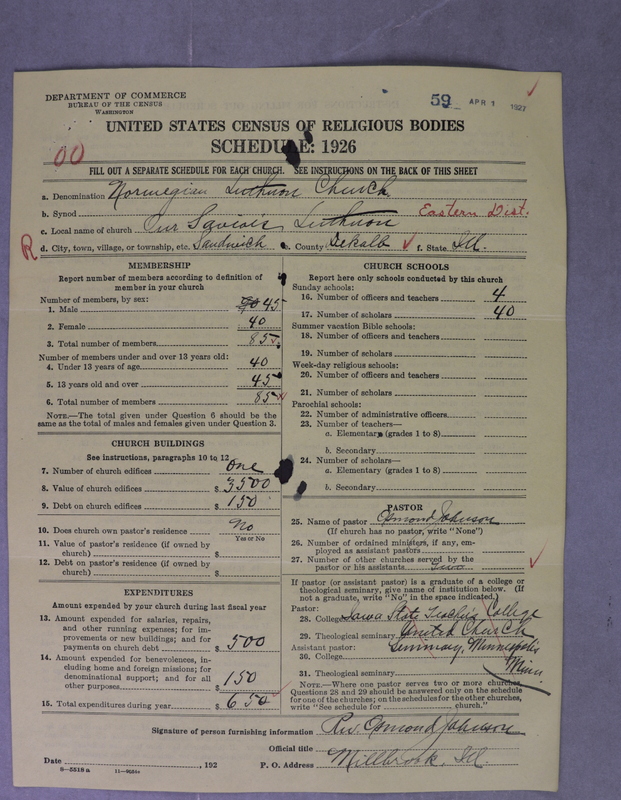 DEPARTMENT OF COMMERCE
BUREAU OF THE CENSUS
WASHINGTON
59 APR 1 1927
UNITED STATES CENSUS OF RELIGIOUS BODIES
SCHEDULE: 1926
00
FILL OUT A SEPARATE SCHEDULE FOR EACH CHURCH. SEE INSTRUCTIONS ON THE BACK OF THIS SHEET
a. Denomination Norwegian Luthuran Church
b. Synod Eastern Dist.
c. Local name of church Our Savior's Luthuran
R d. City, town, village, or township, etc. Sandwich e. County Dekalb f. State Ill.
MEMBERSHIP
Report number of members according to definition of
member in your church
Number of members, by sex:
1. Male 45
2. Female 40
3. Total number of members 85
Number of members under and over 13 years old:
4. Under 13 years of age 40
5. 13 years old and over 45
6. Total number of members 85
NOTE.—The total given under Question 6 should be the
same as the total of males and females given under Question 3.
CHURCH BUILDINGS
See instructions, paragraphs 10 to 12
7. Number of church edifices One
8. Value of church edifices $ 3500
9. Debt on church edifices $ 150
10. Does church own pastor's residence No
Yes or No
11. Value of pastor's residence (if owned by
church) $
12. Debt on pastor's residence (if owned by
church) $
EXPENDITURES
Amount expended by your church during last fiscal year
13. Amount expended for salaries, repairs,
and other running expenses; for im-
provements or new buildings; and for
payments on church debt $ 500
14. Amount expended for benevolences, in-
cluding home and foreign missions; for
denominational support; and for all
other purposes $ 150
15. Total expenditures during year $ 650
CHURCH SCHOOLS
Report here only schools conducted by this church
Sunday schools:
16. Number of officers and teachers 4
17. Number of scholars 40
Summer vacation Bible schools:
18. Number of officers and teachers
19. Number of scholars
Week-day religious schools:
20. Number of officers and teachers
21. Number of scholars
Parochial schools:
22. Number of administrative officers
23. Number of teachers—
a. Elementary (grades 1 to 8)
b. Secondary
24. Number of scholars—
a. Elementary (grades 1 to 8)
b. Secondary
PASTOR
25. Name of pastor Osmond Johnson
(If church has no pastor, write "None")
26. Number of ordained ministers, if any, em-
ployed as assistant pastors
27. Number of other churches served by the
pastor or his assistants Two
If pastor (or assistant pastor) is a graduate of a college or
theological seminary, give name of institution below. (If
not a graduate, write "No" in the space indicated.)
Pastor:
28. College Iowa State Teachers College
29. Theological seminary United Church
Assistant pastor: Seminary, Minneapolis
30. College Minn.
31. Theological seminary
NOTE.—Where one pastor serves two or more churches,
Questions 28 and 29 should be answered only on the schedule
for one of the churches; on the schedules for the other churches,
write "See schedule for church."
Signature of person furnishing information Rev. Osmond Johnson
Official title
Date , 192 P. O. Address Millbrook, Ill.
8—5518 a